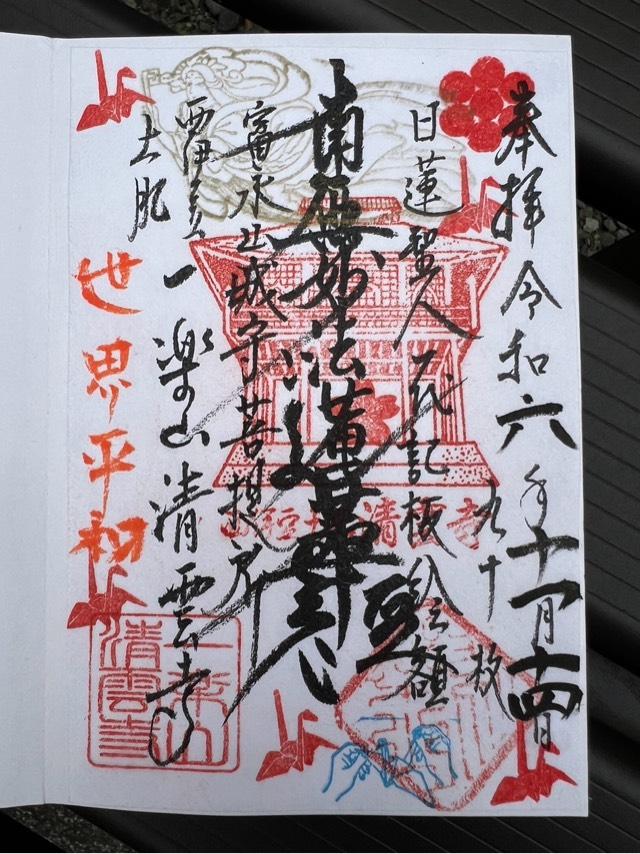 奉拝 令和六年十一月十四日
九十枚
日蓮聖人一代記板絵額
南無妙法蓮華経
富永山城守菩提所
西伊豆
土肥
一楽山清雲寺
世界平和
一楽山
清雲寺